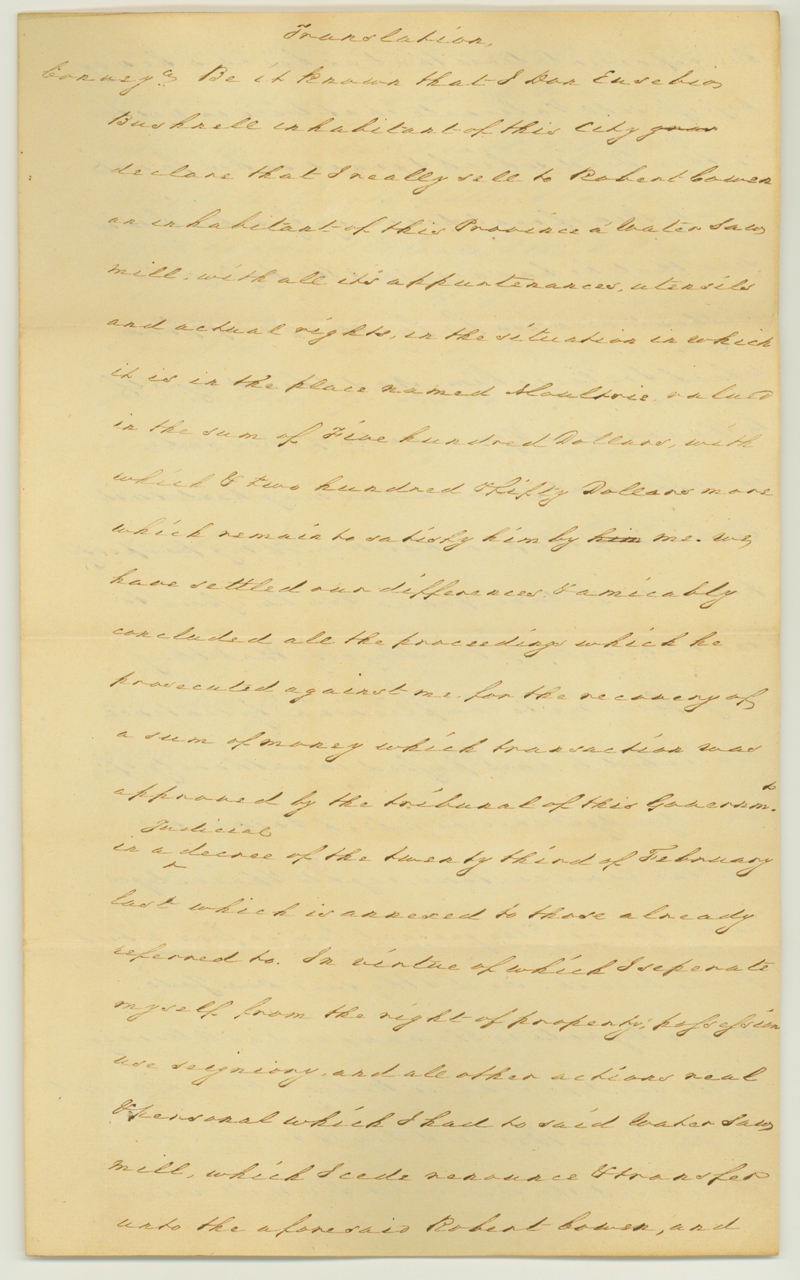 Translation,
Convey.ce Be it known that I Don Eusebio
Bushnell inhabitant of this City
declare that I really sell to Robert Cowen
an inhabitant of this Province a Water Saw
mill; with all it's appurtenances, utensils
and actual rights, in the situation in which
it is in the place named Moultrie valued
in the sum of Five hundred Dollars, with
which & two hundred & fifty Dollars more
which remain to satisfy him by him me. we
have settled our differences. & amicably
concluded all the proceedings which he
prosecuted against me for the recovery of
a sum of money which transaction was
approved by the tribunal of this Governmt.
Judicial
in a decree of the twenty third of February
last which is annexed to those already
referred to. In virtue of which I seperate
myself from the right of property, possession
use seigniory, and all other actions real
& personal which I had to said Water Saw
mill, which I cede renounce & transfer
unto the aforesaid Robert Cowen, and